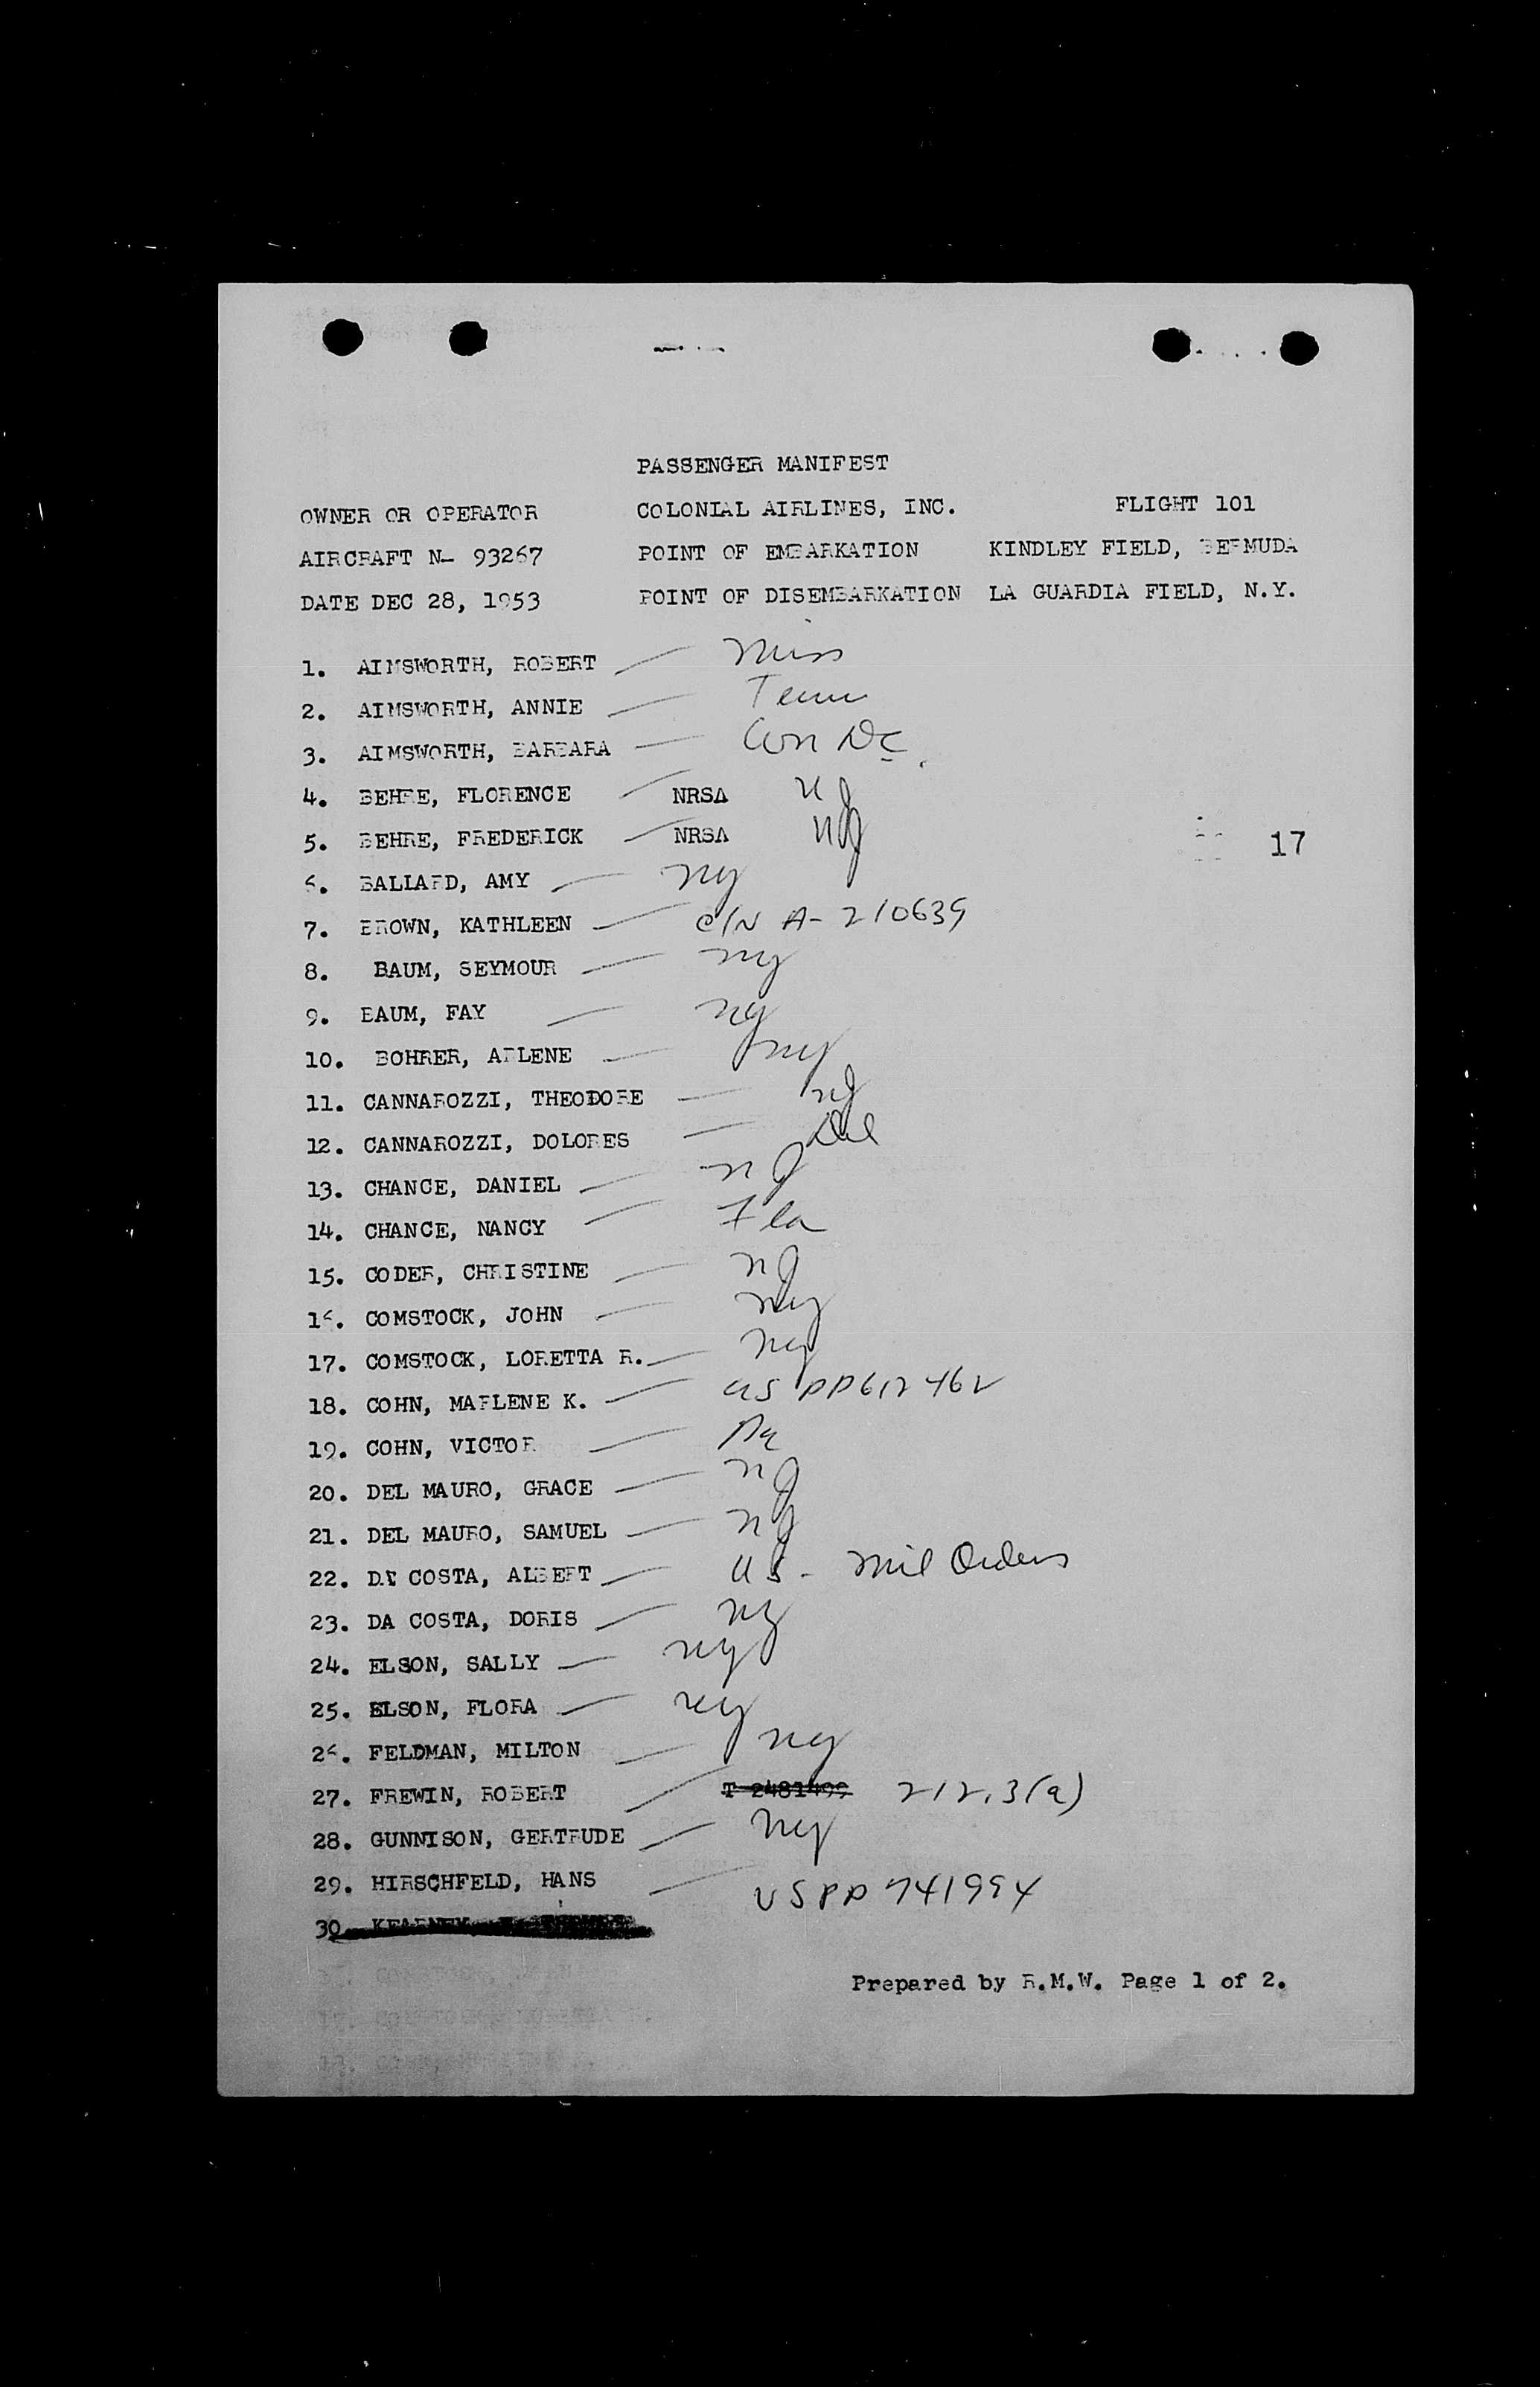 PASSENGER MANIFEST
OWNER OR OPERATOR COLONIAL AIRLINES, INC. FLIGHT 101
AIRCRAFT N- 93267 POINT OF EMBARKATION KINDLEY FIELD, BERMUDA
DATE DEC 28, 1953 POINT OF DISEMBARKATION LA GUARDIA FIELD, N.Y.
1. AIMSWORTH, ROBERT — Miss
2. AIMSWORTH, ANNIE — Tenn
3. AIMSWORTH, BARBARA —
4. BEHRE, FLORENCE — NRSA NJ
5. BEHRE, FREDERICK — NRSA NJ
17
6. BALLARD, AMY — ny
7. BROWN, KATHLEEN — C/N A-210639
8. BAUM, SEYMOUR — ny
9. BAUM, FAY — ny
10. BOHRER, ARLENE — ny
11. CANNAROZZI, THEODORE — nJ
12. CANNAROZZI, DOLORES — Del
13. CHANCE, DANIEL — nJ
14. CHANCE, NANCY — Fla
15. CODER, CHRISTINE — nJ
16. COMSTOCK, JOHN — ny
17. COMSTOCK, LORETTA R. — ny
18. COHN, MARLENE K. — US PP612462
19. COHN, VICTOR — Pa
20. DEL MAURO, GRACE — nJ
21. DEL MAURO, SAMUEL — nJ
22. DA COSTA, ALBERT — US - Mil Orders
23. DA COSTA, DORIS — ny
24. ELSON, SALLY — ny
25. ELSON, FLORA — ny
26. FELDMAN, MILTON — ny
27. FREWIN, ROBERT — T-2481499 212.3(a)
28. GUNNISON, GERTRUDE — ny
29. HIRSCHFELD, HANS — USPP 741994
30.
Prepared by R.M.W. Page 1 of 2.